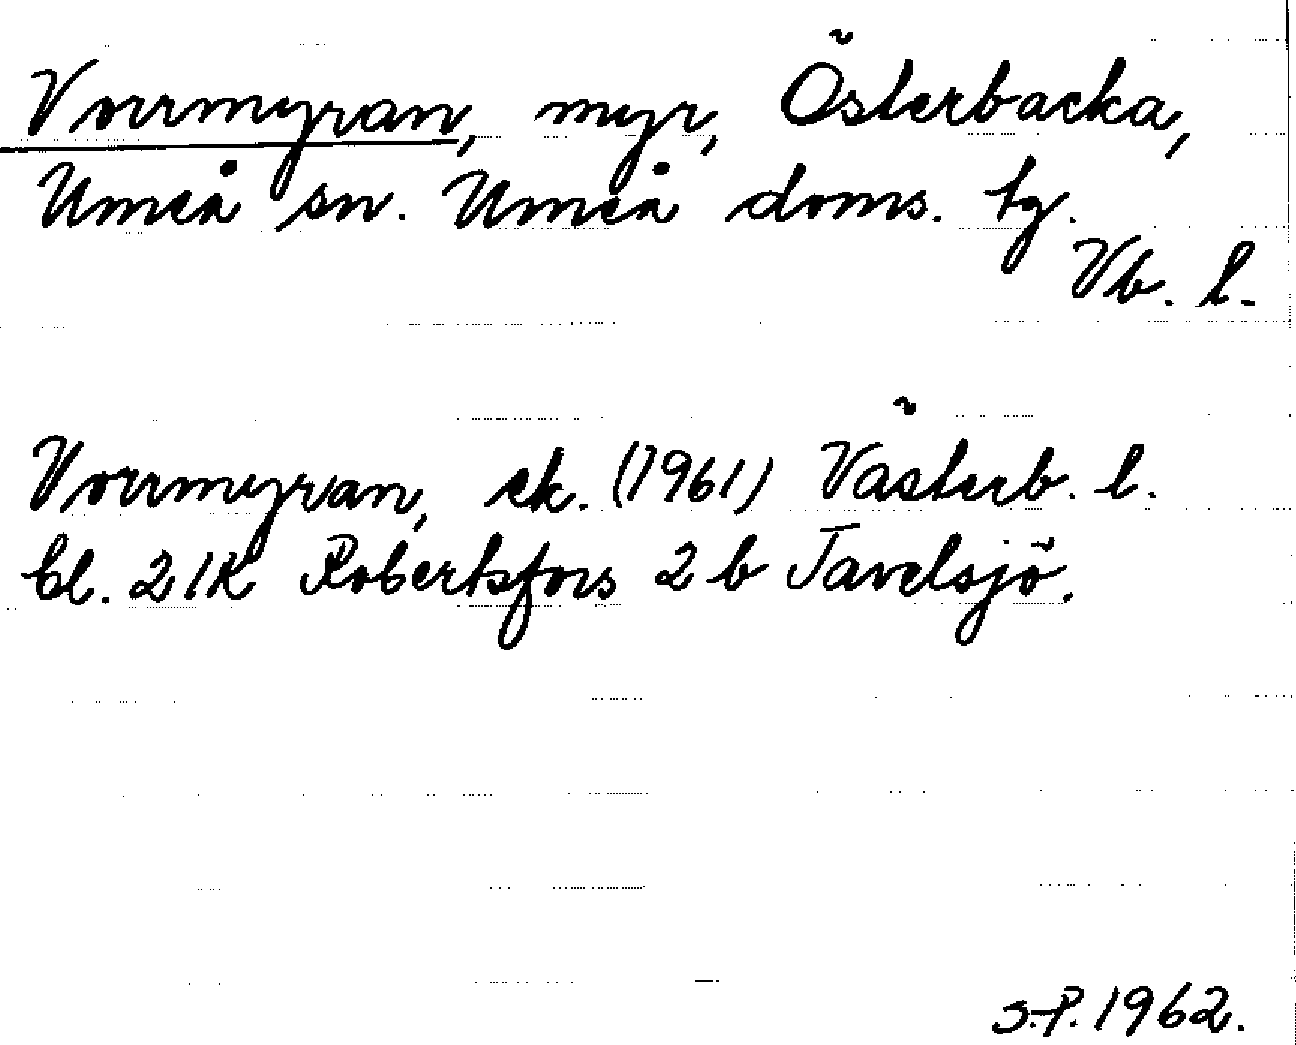 Vorrmyran, myr, Österbacka,
Umeå sn. Umeå doms. tg.
Vb. l.
Vorrmyran, ek. (1961) Västerb. l.
bl. 21K Robertsfors 2 b Tavelsjö.
S.P. 1962.